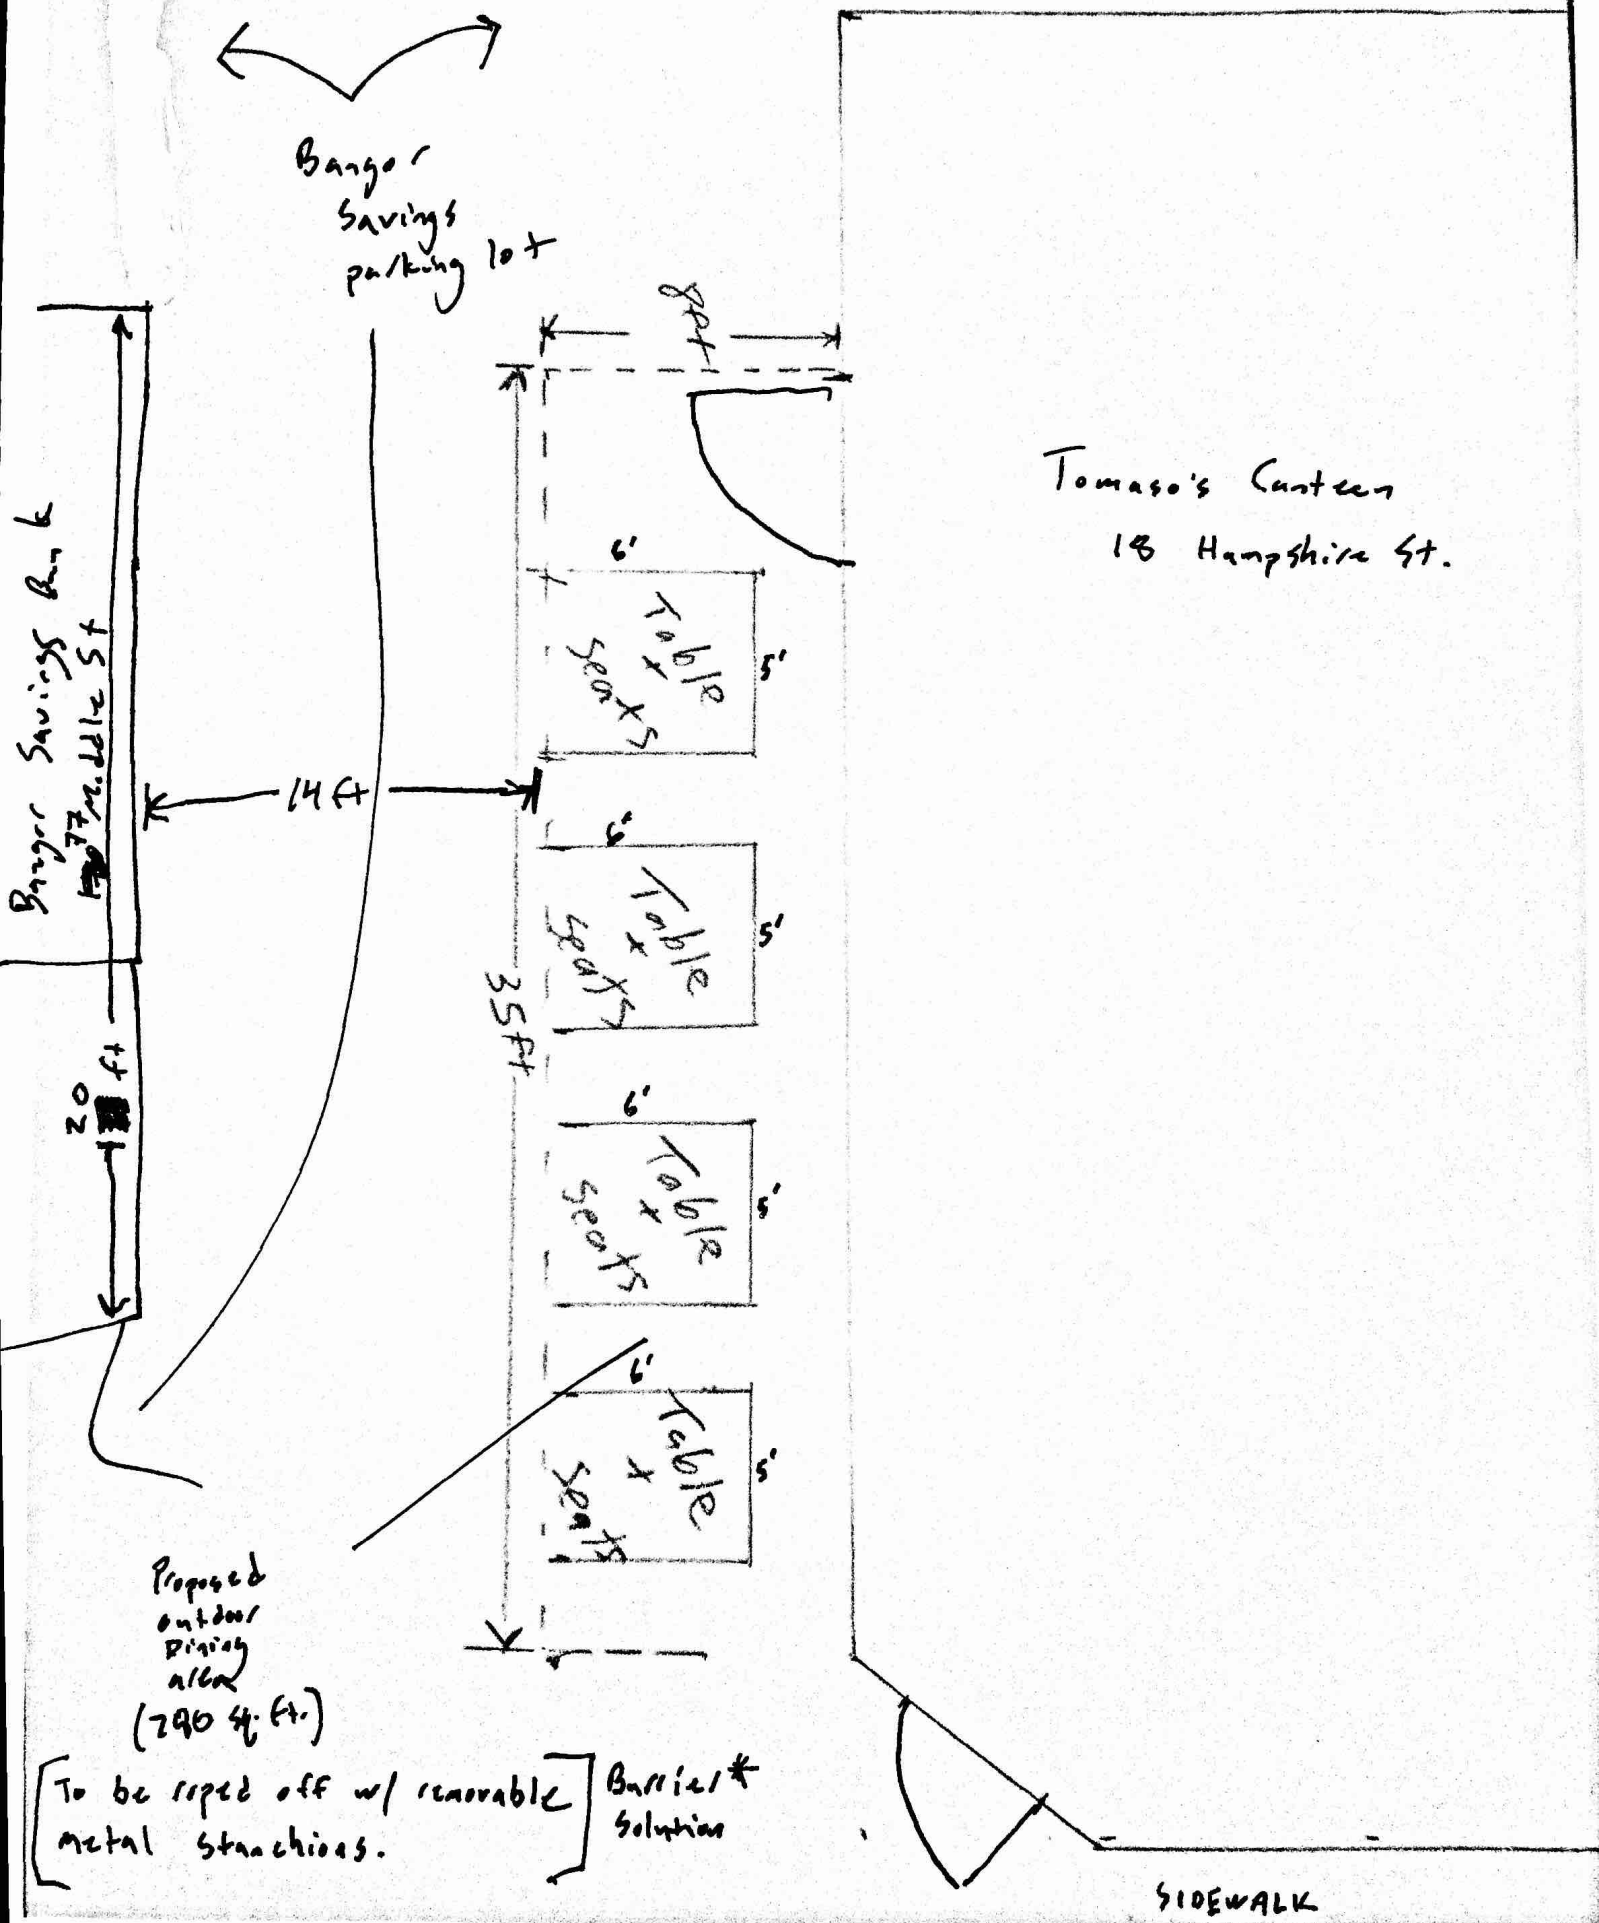 Bangor
Savings
parking lot
8ft
Tomaso's Canteen
18 Hampshire St.
Bangor Savings Bank
77 Middle St
20 ft
14 ft
35ft
6'
Table
x
seats
5'
6'
Table
x
seats
5'
6'
Table
x
seats
5'
6'
Table
x
seats
5'
Proposed
outdoor
Dining
area
(280 sq. ft.)
[To be roped off w/ removable
metal stanchions.]
Barrier*
Solution
SIDEWALK